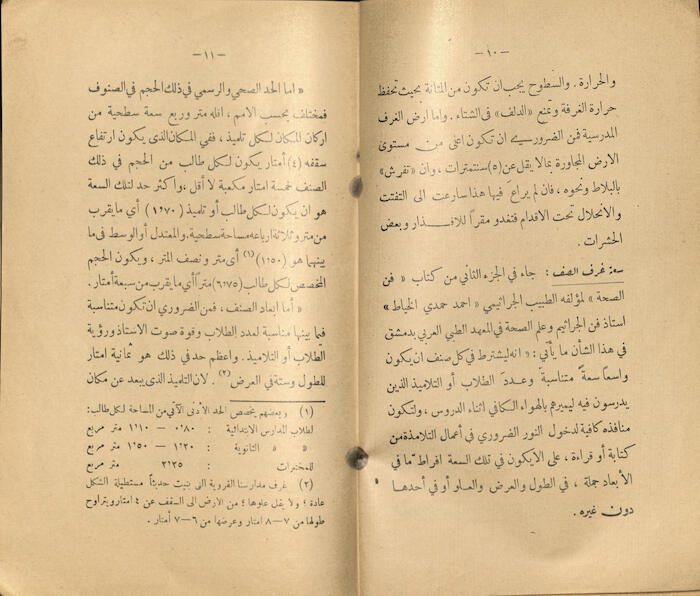 — ١٠ —
والحرارة . والسطوح يجب ان تكون من المتانة بحيث تحفظ
حرارة الغرفة وتمنع «الدلف» في الشتاء . واما ارض الغرف
المدرسية فمن الضروري ان تكون اعلى من مستوى
الارض المجاورة بمالا يقل عن (٥) سنتمترات ، وان «تفرش»
بالبلاط ونحوه ، فان لم يراع فيها هذا سارعت الى التفتت
والانحلال تحت الاقدام فتغدو مقراً للاقذار وبعض
الحشرات .
غرف الصف : جاء في الجزء الثاني من كتاب « فن
الصحة » لمؤلفه الطبيب الجراثيمي « احمد حمدي الخياط »
استاذ فن الجراثيم وعلم الصحة في المعهد الطبي العربي بدمشق
في هذا الشأن ما يأتي : « انه ليشترط في كل صنف ان يكون
واسعاً سعةً متناسبةً وعدد الطلاب أو التلاميذ الذين
يدرسون فيه ليميرهم بالهواء الكافي اثناء الدروس ، ولتكون
منافذه كافية لدخول النور الضروري في أعمال التلامذة من
كتابة أو قراءة ، على الايكون في تلك السعة افراط ما في
الأبعاد جملة ، في الطول والعرض والعلو أو في أحدها
دون غيره .
— ١١ —
« اما الحد الصحي والرسمي في ذلك الحجم في الصنوف
فمختلف بحسب الامم ، اقله متر وربع سعة سطحية من
اركان المكان لكل تلميذ ، ففي المكان الذى يكون ارتفاع
سقفه (٤) أمتار يكون لكل طالب من الحجم في ذلك
الصنف خمسة امتار مكعبة لا أقل ، واكثر حد لتلك السعة
هو ان يكون لكل طالب أو تلميذ (١٬٧٠) أي ما يقرب
من متر وثلاثة ارباعه مساحة سطحية. والمعتدل أو الوسط في ما
بينهما هو (١٬٥٠) (١) أى متر ونصف المتر ، ويكون الحجم
المخصص لكل طالب (٦٬٧٥) متراً أي ما يقرب من سبعة أمتار .
« أما ابعاد الصنف ، فمن الضروري ان تكون متناسبة
فيما بينها مناسبة لعدد الطلاب وقوة صوت الاستاذ ورؤية
الطلاب أو التلاميذ . واعظم حد في ذلك هو ثمانية امتار
للطول وستة في العرض (٢) . لان التلميذ الذى يبعد عن مكان
(١) وبعضهم يخصص الحد الأدنى الآتي من المساحة لكل طالب :
لطلاب المدارس الابتدائية : ٠٬٨٠ — ١٬١٠ متر مربع
« « الثانوية : ١٬٢٠ — ١٬٥٠ متر مربع
للمختبرات : ٢٬٢٥ متر مربع
(٢) غرف مدارسنا القروية التى بنيت حديثاً مستطيلة الشكل
عادة ؛ ولا يقل علوها ؛ من الارض الى السقف عن ٤ امتار ويتراوح
طولها من ٧–٨ امتار وعرضها من ٦–٧ أمتار .